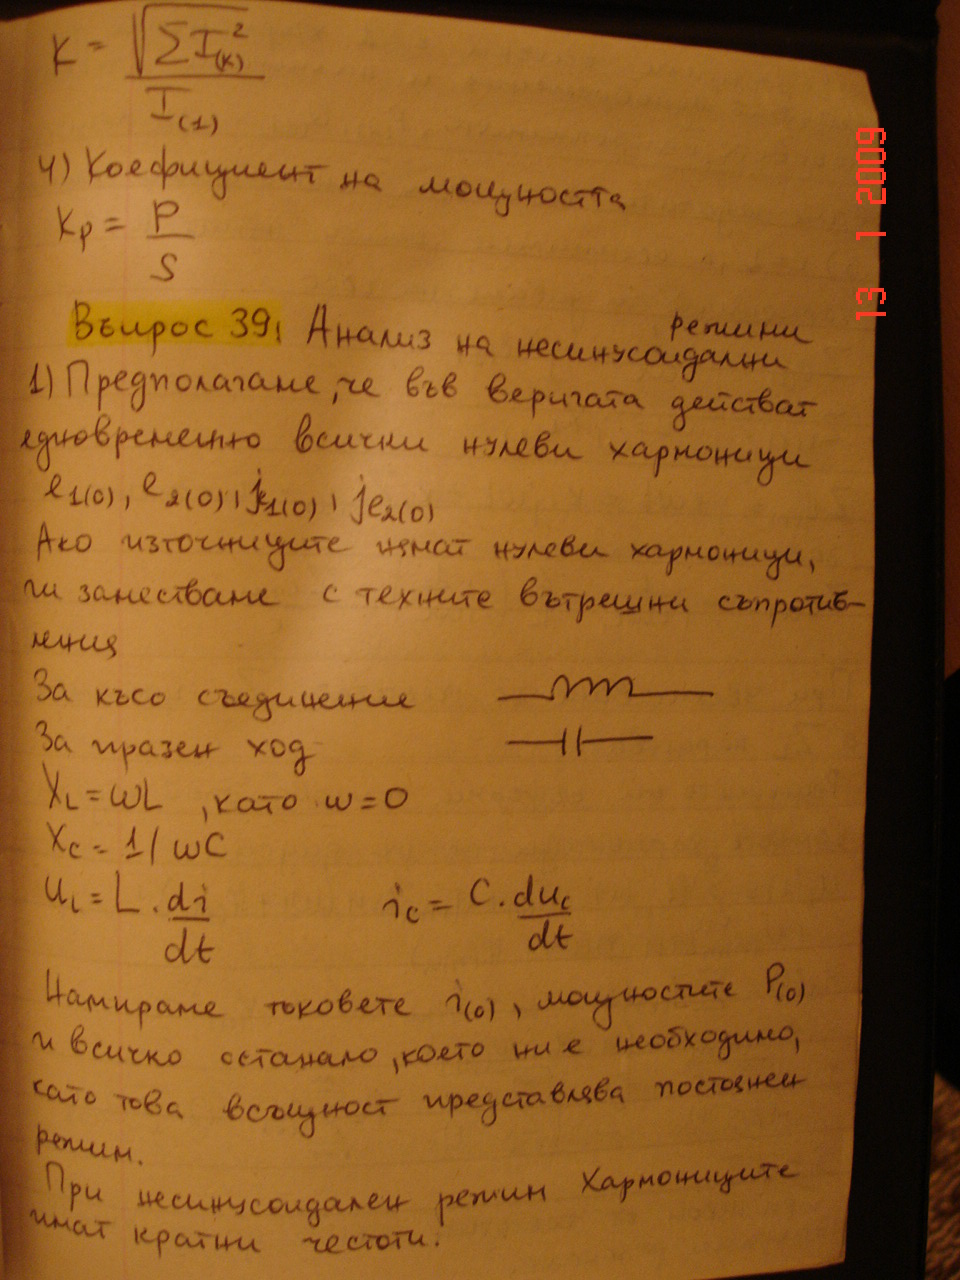 K = √ΣI(K)² / I(1)
4) Коефициент на мощността
Kp = P / S
Въпрос 39: Анализ на несинусоидални режими
1) Предполагаме, че във веригата действат
едновременно всички нулеви хармоници
e1(0), e2(0), je1(0), je2(0)
Ако източниците нямат нулеви хармоници,
ги заместваме с техните вътрешни съпротив-
ления
За късо съединение
За празен ход
XL = ωL , като ω = 0
Xc = 1/ωC
uL = L . di/dt   ic = C . duc/dt
Намираме токовете i(0), мощностите P(0)
и всичко останало, което ни е необходимо,
като това всъщност представлява постоянен
режим.
При несинусоидален режим Хармониците
имат кратни честоти.
13 1 2009